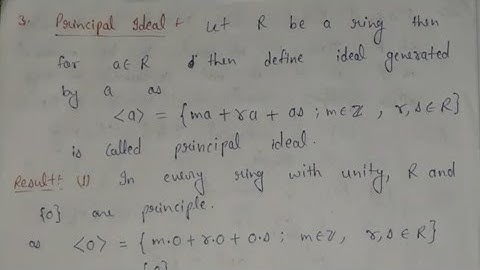 3. Principal Ideal + Let R be a ring then
for a ∈ R then define ideal generated
by a as
<a> = {ma + ra + as ; m ∈ ℤ , r, s ∈ R}
is called principal ideal.
Result: (1) In every ring with unity, R and
{0} are principle.
as <0> = {m.0 + r.0 + 0.s ; m ∈ ℤ, r, s ∈ R}